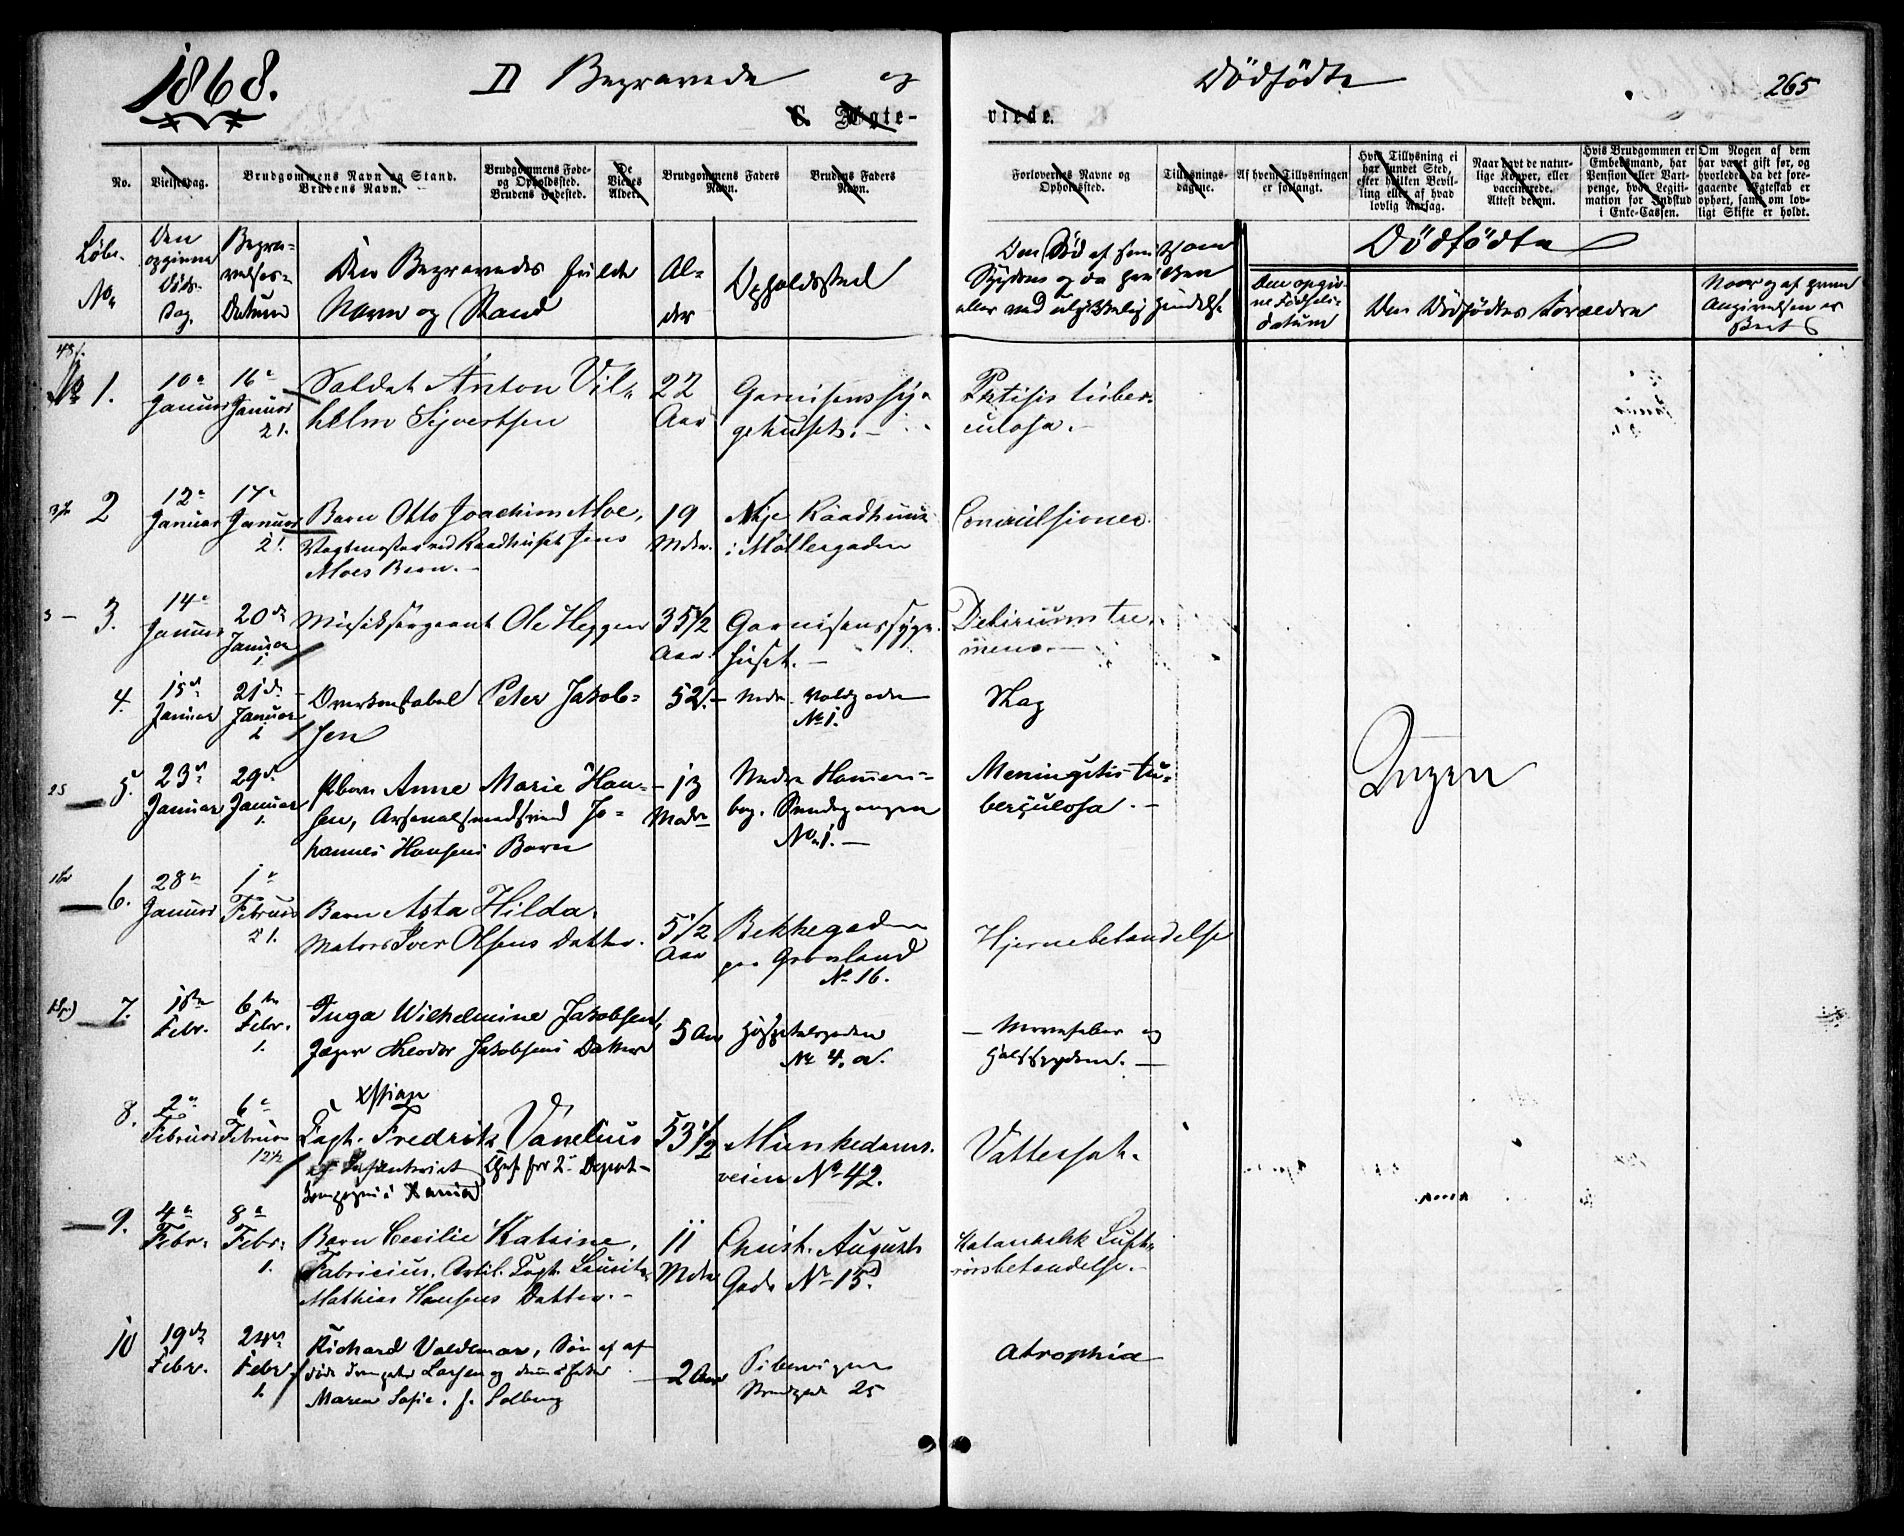 1868. D Begravede og Dödfödte 265
C. Ægte- viede.
No. Vielsesdag. Brudgommens Navn og Stand. Brudens Navn. Brudgommens Føde- og Opholdssted. Brudens Fødested. De Viedes Alder. Brudgommens Faders Navn. Brudens Faders Navn.
Forlovernes Navne og Opholdssted. Tillysnings-dagene. Af hvem Tillysningen er forlangt. Hvis Tillysning ei har fundet Sted, efter hvilken Bevilling eller af hvad lovlig Aarsag. Naar havt de naturlige Kopper, eller vaccinerede. Attest derom. Hvis Brudgommen er Embedsmand, har Pension eller Vartpenge, hvad Legitimation for Indskud i Enke-Cassen. Om Nogen af dem har været gift før, og hvorledes da det foregaaende Ægteskab er ophørt, samt om lovligt Skifte er holdt.
Löbe- No. Den opgivne Döds- dag. Begravelses- Datum Den Begravedes fulde Navn og Stand Alder Opholdssted
Dödfödte
Den opgivne Födsels-datum Den Dödfödtes Forældre
No 1. 10de Januar 16de Januar 21. Soldat Anton Vil-
helm Sjvertsen 22 Aar Garnisonssy-
gehuset.- Phtisis tuber-
culosa.-
2 12te Januar 17de Januar 21. Barn Otto Joachim Moe,
Vagtmester ved Raadhuset Jens
Moes Barn.- 19 Mdr. Nye Raadhuus
i Møllergaden Convulsioner.
3. 14de Januar 20de Januar 1 Musiksergeant Ole Heggen 35 1/2 Aar. Garnisonssyge-
huset.- Delirium tre-
mens.-
4. 15de Januar 21de Januar Overkonstabel Peter Jakob-
sen 52.- Nedr. Voldgaden
No 1. Slag
5. 23de Januar 29de Januar 1. Anne Marie Han-
sen, Jo-
hannes Hansens Barn 13 Mdr Nedre Hammers-
borg.
No 1.- Meningitis tu-
berculosa.-
6. 28de Januar 1te Februar 21. Barn Asta Hilda.
Iver Olsens Datter. 5 1/2 Aar Bekkegaden
paa Grönland
No 16. Hjernebetændelse
7. Febr. 6te Febr. 1. Inga Wilhelmine Jakobsen,
Jæger Theodor Jakobsens Datter 5 Aar Hospitalsgaden
No 4. a. - Nervefeber og
Halssygdom.-
8. 2de Februar 6te Februar Xstian
Capt. Fredrik Vanelius
af Infanteriet Chef for 2. Depot-
kompagni i Xania 53 1/2 Munkedams-
veien No 42. Vattersot.
9. 4de Febr. 8de Febr. 1. Barn Cecilie Katrine,
Fabricius. Artil. Capt. Laurits
Mathias Hansens Datter.- 11 Mdr Christ. Augusts
Gade No 15. Katarrhalsk Luft-
rörsbetændelse.-
10 19de Febr. 24de Febr. 1. Richard Valdemar, Sön af af-
döde Larsen og
Maren Sofie, f. Solberg 2 Aar Pibervigen
25 Atrophia
Ingen